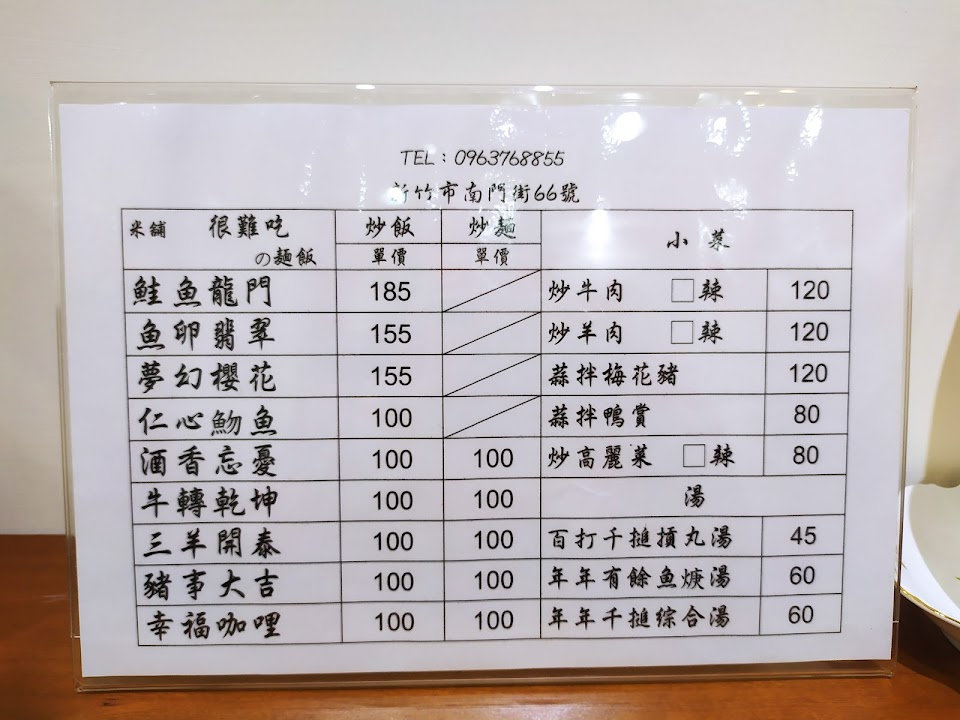 TEL：0963768855
新竹市南門街66號
米舖 很難吃 炒飯 炒麵 小菜
の麵飯 單價 單價
鮭魚龍門 185 炒牛肉 □辣 120
魚卵翡翠 155 炒羊肉 □辣 120
夢幻櫻花 155 蒜拌梅花豬 120
仁心魩魚 100 蒜拌鴨賞 80
酒香忘憂 100 100 炒高麗菜 □辣 80
牛轉乾坤 100 100 湯
三羊開泰 100 100 百打千搥摃丸湯 45
豬事大吉 100 100 年年有餘魚焿湯 60
幸福咖哩 100 100 年年千搥綜合湯 60